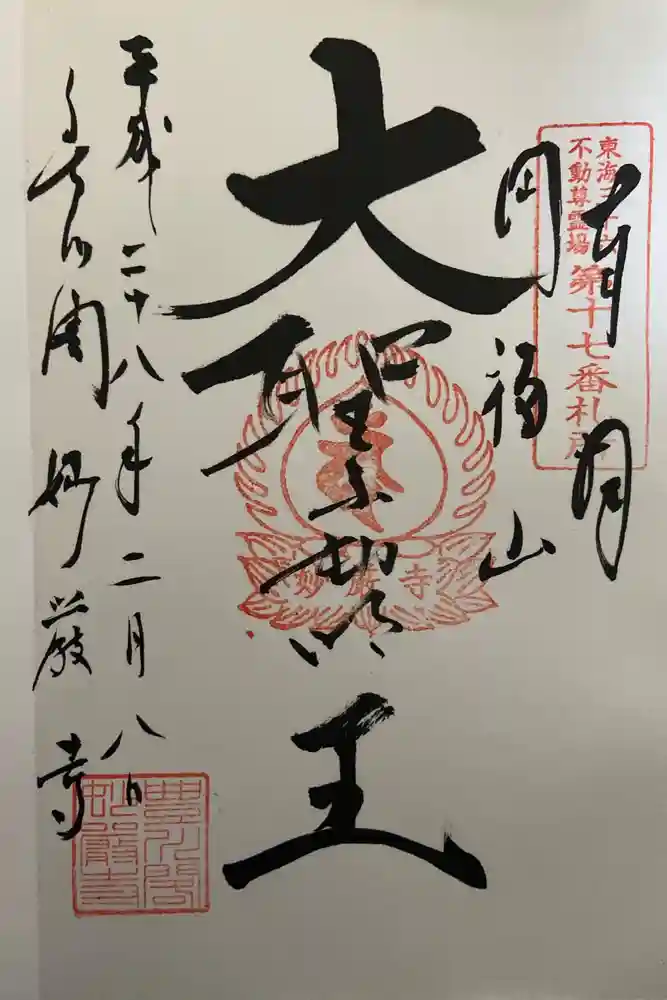 東海三十六
不動尊霊場
第十七番札所
円福山
大聖不動明王
妙厳寺
平成二十八年二月八日
豊川閣 妙嚴寺
豊川閣
妙嚴寺